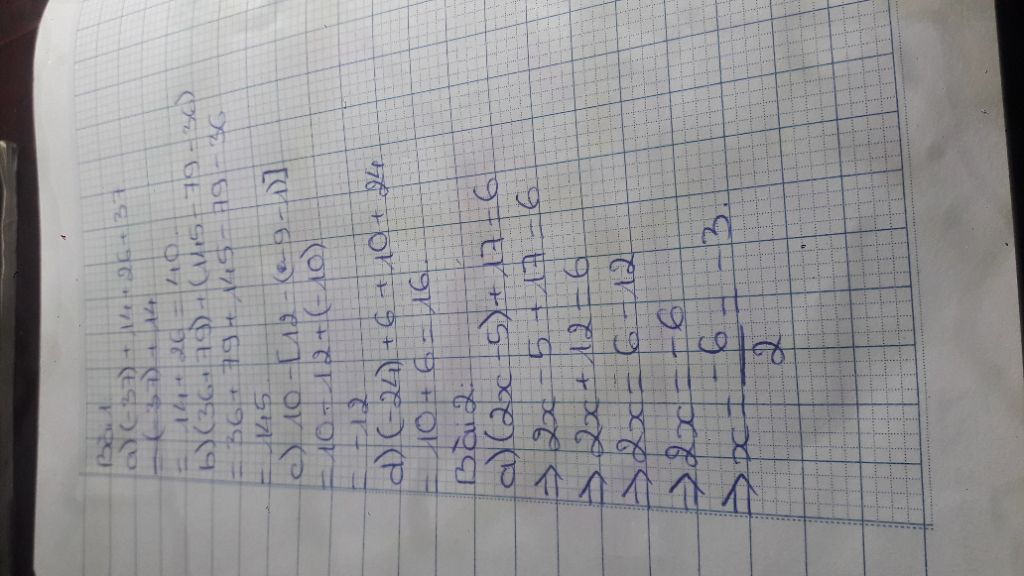 Bài 1
a) (-37) + 14 + 26 + 37
= (-37) + 14
= 14 + 26 = 40
b) (36 + 79) + (145 - 79 - 36)
= 36 + 79 + 145 - 79 - 36
= 145
c) 10 - [12 - (-9 - 1)]
= 10 - 12 + (-10)
= -12
d) (-24) + 6 + 10 + 24
= 10 + 6 = 16
Bài 2:
a) (2x - 5) + 17 = 6
⇒ 2x - 5 + 17 = 6
⇒ 2x + 12 = 6
⇒ 2x = 6 - 12
⇒ 2x = -6
⇒ x = -6/2 = -3.